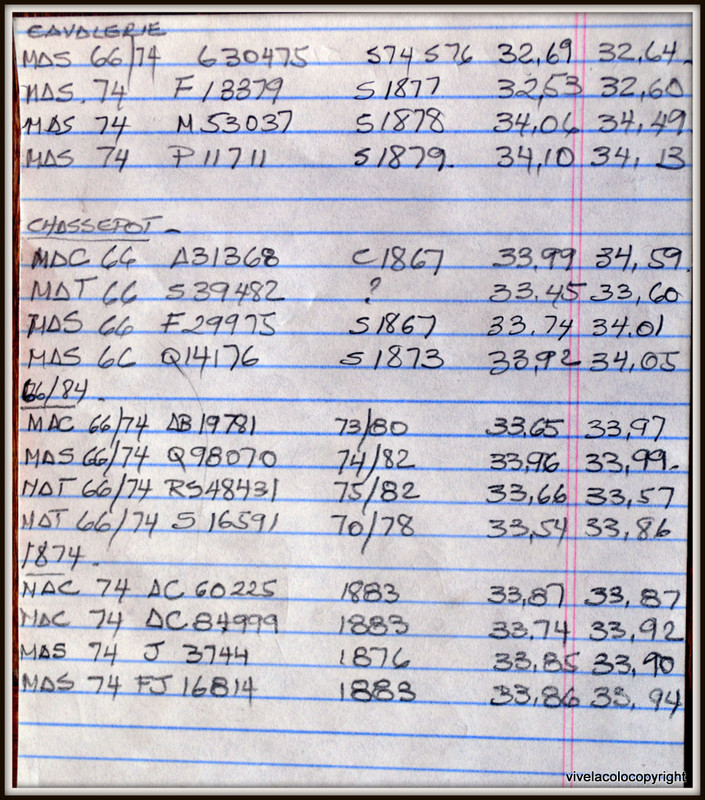 CAVALERIE
MAS 66/74 G30475 S74 S76 32,69 32,64
MAS. 74 F13379 S1877 32,53 32,60
MAS 74 M53037 S1878 34,06 34,49
MAS 74 P11711 S1879. 34,10 34,13
CHASSEPOT -
MAC 66 A31368 C1867 33,99 34,59.
MAT 66 S39482 ? 33.45 33,60
MAS 66 F29975 S1867 33.74 34.01
MAS 66 Q14176 S1873 33,92 34,05
66/84.
MAC 66/74 AB19781 73/80 33,65 33,97
MAS 66/74 Q98070 74/82 33,96 33,99.
MAT 66/74 RS48431 75/82 33,66 33,57
MAT 66/74 S 16591 70/78 33,54 33,86
1874.
MAC 74 AC 60225 1883 33,87 33,87
MAC 74 AC84999 1883 33,74 33,92
MAS 74 J 3744 1876 33,85 33,90
MAS 74 FJ 16814 1883 33,86 33,94
vivelacolocopyright